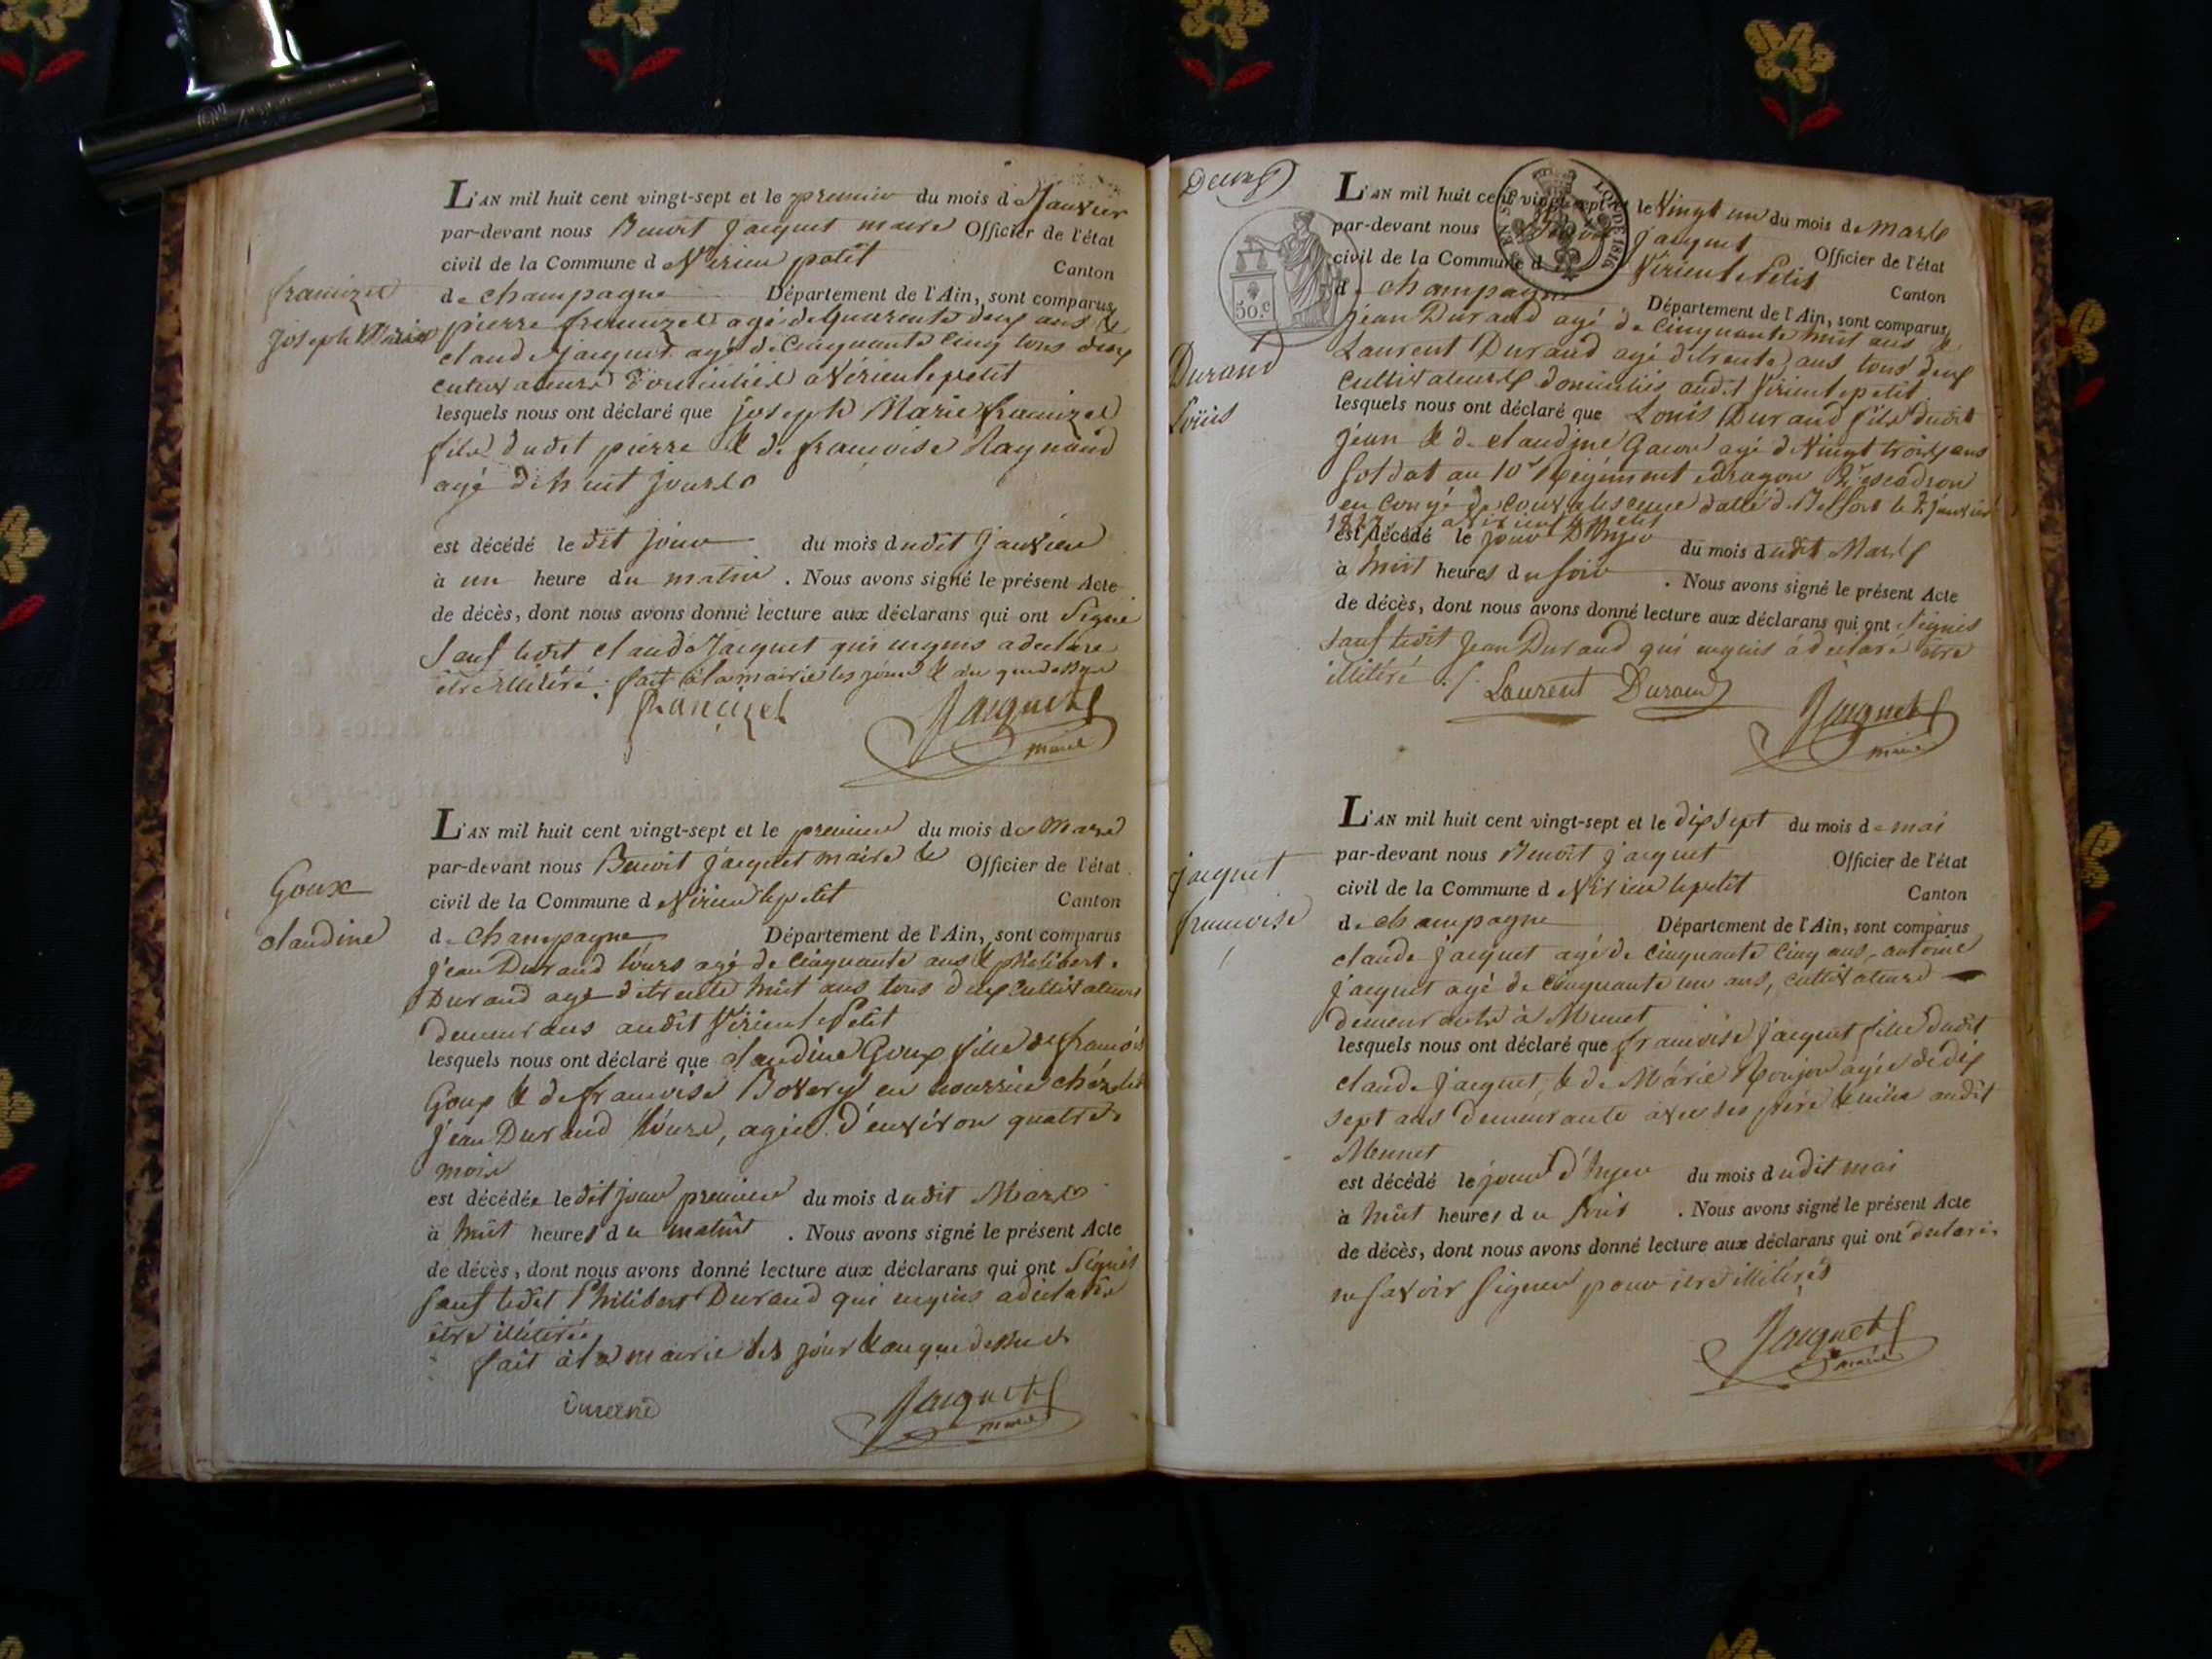 L'AN mil huit cent vingt-sept et le premier du mois de Janvier
par-devant nous Benoit Jacquet maire Officier de l'état
civil de la Commune d Virieu petit Canton
de champagne Département de l'Ain, sont comparus
francizet
joseph Marie
pierre francizet agé de quarente deux ans &
claude Jacquet agé de cinquante cinq tous deux
cultivateurs domiciliés a Virieu le petit
lesquels nous ont déclaré que joseph Marie francizet
fils dudit pierre & de francoise Raynaud
agé de huit jours
est décédé le dit jour du mois dudit janvier
à un heure du matin . Nous avons signé le présent Acte
de décès, dont nous avons donné lecture aux déclarans qui ont signé
sauf ledit claude Jacquet qui enquis a declaré
être illitéré : fait à la mairie les jour & an que dessus
francizet Jacquet
maire
L'AN mil huit cent vingt-sept et le premier du mois de Mars
par-devant nous Benoit jacquet maire & Officier de l'état
civil de la Commune d Virieu le petit Canton
Goux
claudine
de champagne Département de l'Ain, sont comparus
jean Durand agé de cinquante ans & philibert
Durand agé de trente huit ans tous deux cultivateurs
demeurans audit Virieu le Petit
lesquels nous ont déclaré que claudine Goux fille de francois
Goux & de francoise Bovery en nourrice chéz ledit
jean Durand, agée d'environ quatre
mois
est décédée le dit jour premier du mois dudit Mars
à huit heures du matin . Nous avons signé le présent Acte
de décès, dont nous avons donné lecture aux déclarans qui ont signés
sauf ledit Philibert Durand qui enquis a déclaré
être illitéré
fait à la mairie les jour & an que dessus
Jacquet
maire
Deces
L'AN mil huit cent vingt-sept et le Vingt un du mois de Mars
par-devant nous Benoit Jacquet Officier de l'état
civil de la Commune d Virieu le Petit Canton
de champagne Département de l'Ain, sont comparus
EN SUS LOI DE 1816
50.c
Durand
Loüis
jean Durand agé de cinquante huit ans &
Laurent Durand agé de trente ans tous deux
cultivateurs domiciliés audit Virieu le petit
lesquels nous ont déclaré que Louis Durand fils dudit
jean & de claudine Gacon agé de Vingt trois ans
soldat au 10e Regiment dragon 2e escadron
en congé de convalescence datté de Belfort le janvier
1827 a Virieu le Petit
est décédé le jour d'hyer du mois dudit Mars
à huit heures du soir . Nous avons signé le présent Acte
de décès, dont nous avons donné lecture aux déclarans qui ont signés
sauf ledit Jean Durand qui enquis à déclaré être
illitéré ./. Laurent Durand Jacquet
maire
L'AN mil huit cent vingt-sept et le dix sept du mois de mai
par-devant nous Benoit jacquet Officier de l'état
civil de la Commune d Virieu le petit Canton
jacquet
francoise
de champagne Département de l'Ain, sont comparus
claude jacquet agé de cinquante cinq ans, antoine
jacquet agé de cinquante un ans, cultivateurs
demeurants à Munet
lesquels nous ont déclaré que francoise jacquet fille dudit
claude jacquet, & de Marie Roujon agée de dix
sept ans demeurante avec ses père & mère audit
Munet
est décédé le jour d'hyer du mois dudit mai
à huit heures du soir . Nous avons signé le présent Acte
de décès, dont nous avons donné lecture aux déclarans qui ont declarés
ne savoir signer pour être illitérés
Jacquet
maire